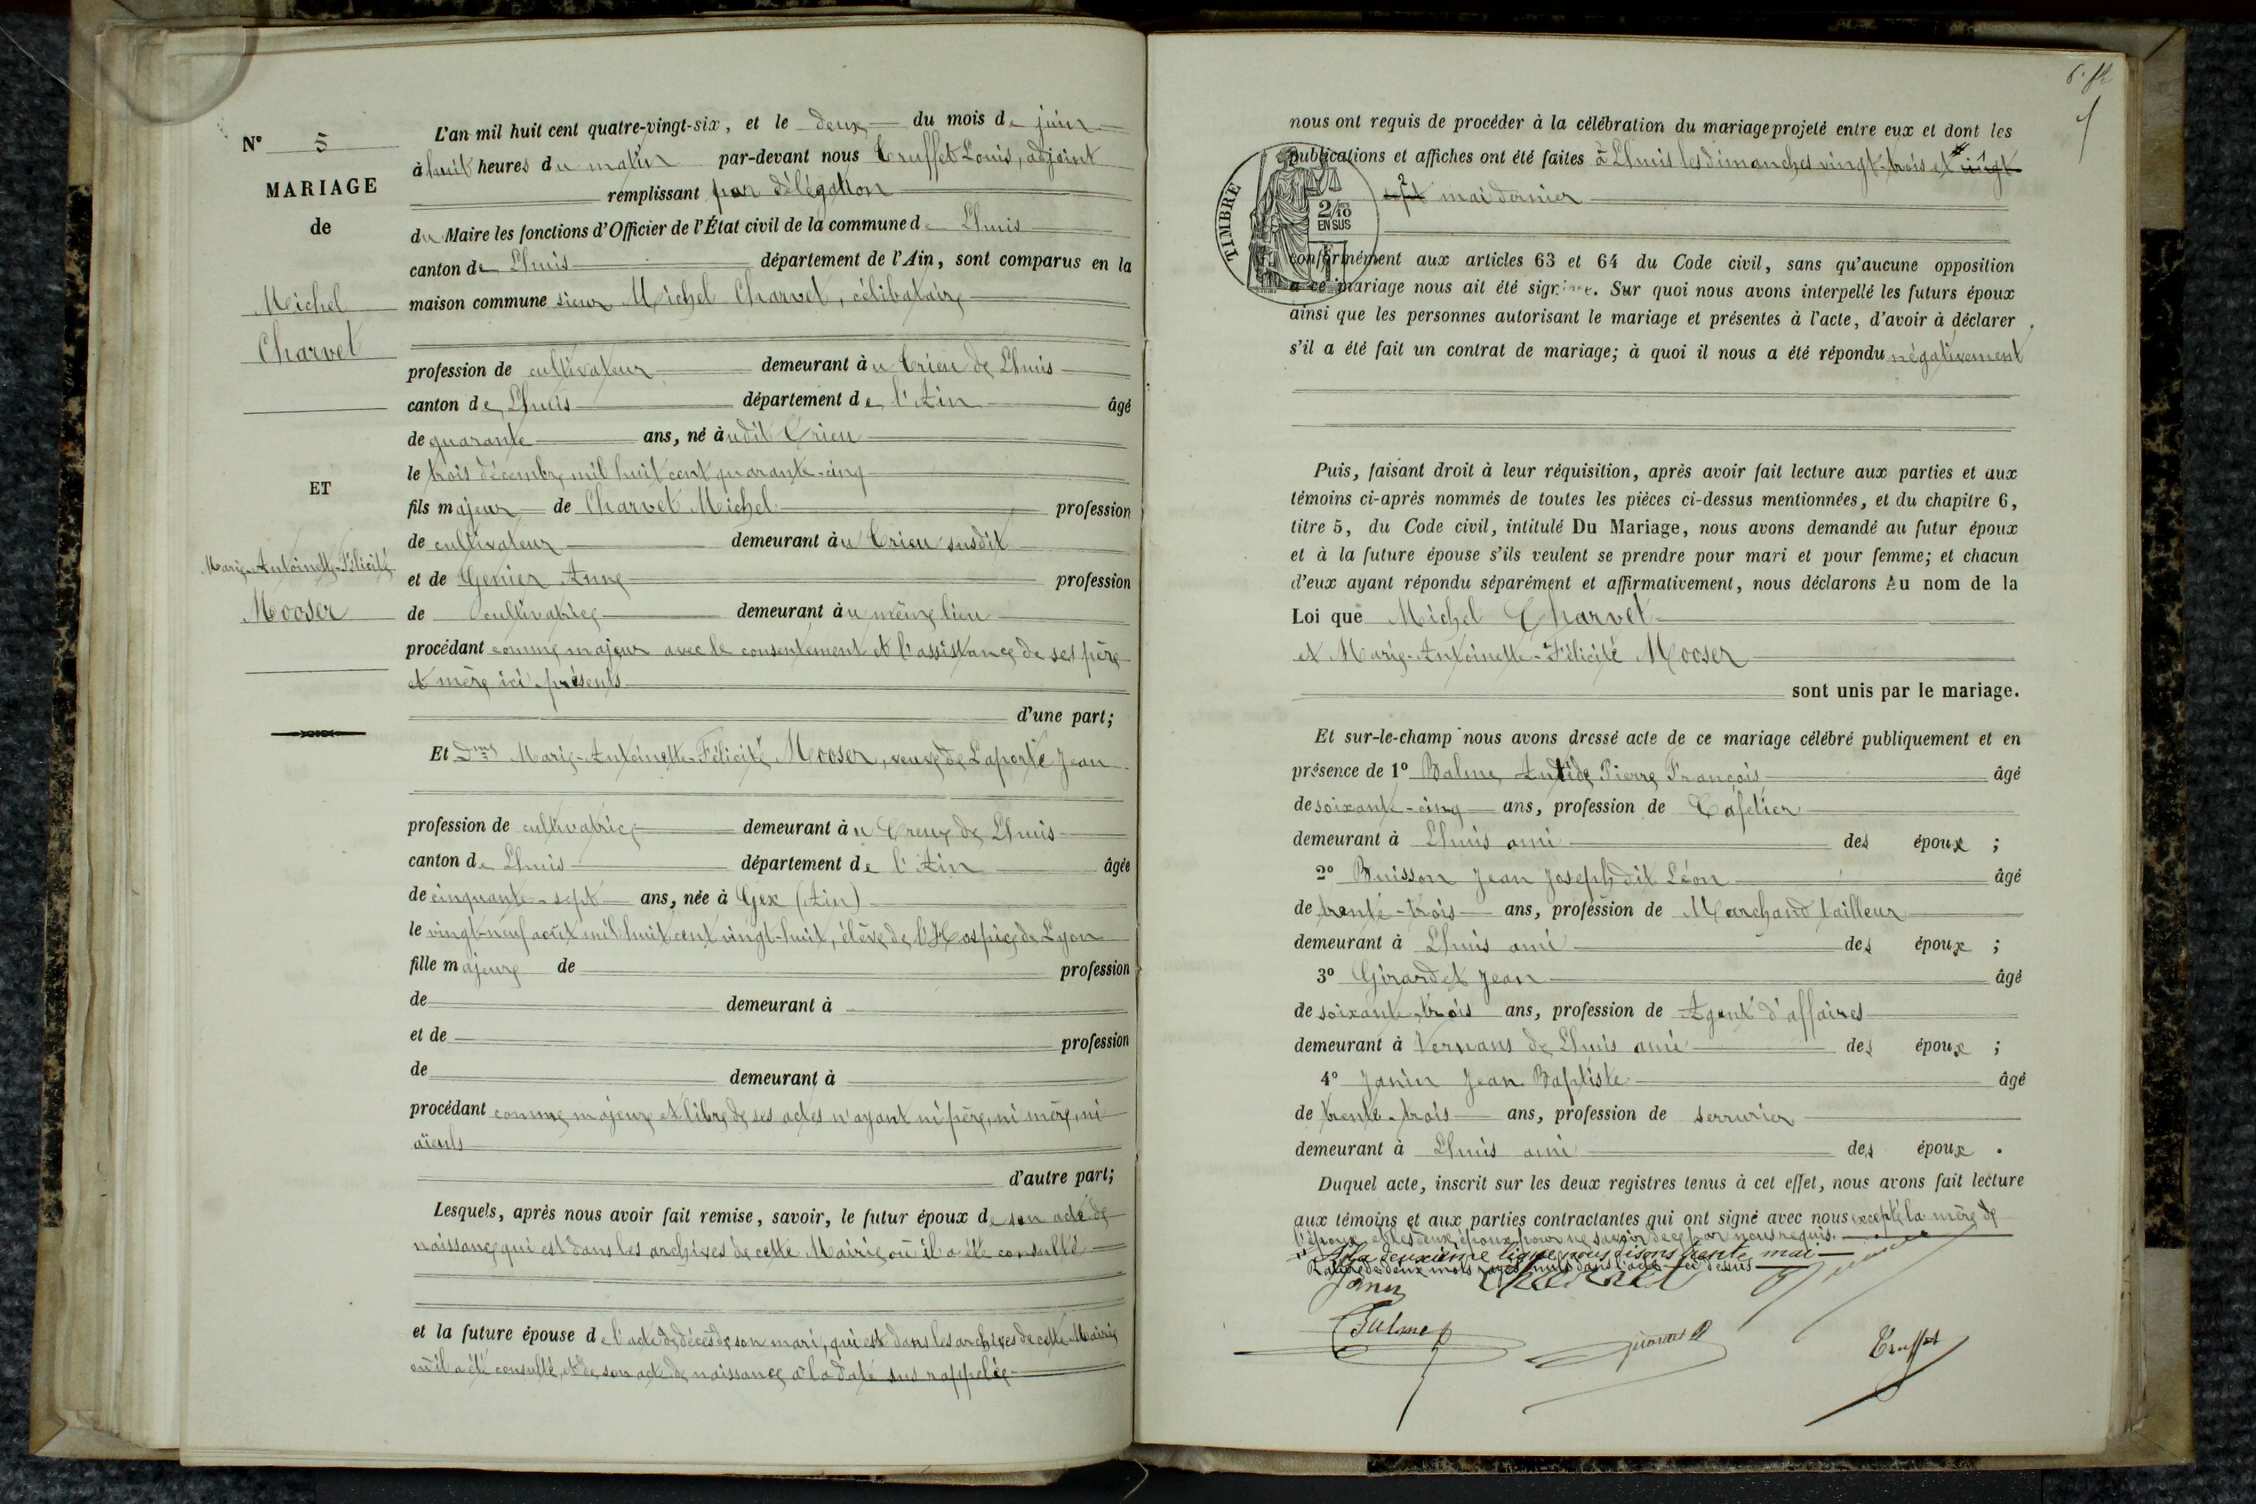 N° 5
MARIAGE
de
Michel
Charvet
ET
Marie-Antoinette-Félicité
Mooser
L'an mil huit cent quatre-vingt-six, et le deux du mois de juin
à huit heures du matin par-devant nous Truffet Louis, adjoint
remplissant par délégation
du Maire les fonctions d'Officier de l'État civil de la commune de Lhuis
canton de Lhuis département de l'Ain, sont comparus en la
maison commune sieur Michel Charvet, célibataire
profession de cultivateur demeurant àu Crieu de Lhuis
canton de Lhuis département de l'Ain âgé
de quarante ans, né àudit Crieu
le trois décembre mil huit cent quarante-cinq
fils majeur de Charvet Michel profession
de cultivateur demeurant àu Crieu susdit
et de Genier Anne profession
de cultivatrice demeurant àu même lieu
procédant comme majeur avec le consentement et l'assistance de ses père
et mère ici présents
d'une part;
Et Dme Marie-Antoinette-Félicité Mooser, veuve de Laporte Jean
profession de cultivatrice demeurant àu Creux de Lhuis
canton de Lhuis département de l'Ain âgée
de cinquante-sept ans, née à Gex (Ain)
le vingt-neuf août mil huit cent vingt-huit, élève de l'Hospice de Lyon
fille majeure de profession
de demeurant à
et de profession
de demeurant à
procédant comme majeure et libre de ses actes n'ayant ni père, ni mère, ni
aïeuls
d'autre part;
Lesquels, après nous avoir fait remise, savoir, le futur époux de son acte de
naissance qui est dans les archives de cette Mairie où il a été consulté
et la future épouse de l'acte de décès de son mari, qui est dans les archives de cette Mairie
où il a été consulté, et de son acte de naissance à la date sus rappelée
nous ont requis de procéder à la célébration du mariage projeté entre eux et dont les
publications et affiches ont été faites à Lhuis les dimanches vingt-trois et vingt
sept mai dernier
TIMBRE
2/10
EN SUS
conformément aux articles 63 et 64 du Code civil, sans qu'aucune opposition
à ce mariage nous ait été signifiée. Sur quoi nous avons interpellé les futurs époux
ainsi que les personnes autorisant le mariage et présentes à l'acte, d'avoir à déclarer
s'il a été fait un contrat de mariage; à quoi il nous a été répondu négativement
Puis, faisant droit à leur réquisition, après avoir fait lecture aux parties et aux
témoins ci-après nommés de toutes les pièces ci-dessus mentionnées, et du chapitre 6,
titre 5, du Code civil, intitulé Du Mariage, nous avons demandé au futur époux
et à la future épouse s'ils veulent se prendre pour mari et pour femme; et chacun
d'eux ayant répondu séparément et affirmativement, nous déclarons Au nom de la
Loi que Michel Charvet
et Marie-Antoinette-Félicité Mooser
sont unis par le mariage.
Et sur-le-champ nous avons dressé acte de ce mariage célébré publiquement et en
présence de 1° Balme Antide Pierre François âgé
de soixante-cinq ans, profession de Cafetier
demeurant à Lhuis ami des époux ;
2° Buisson Jean Joseph dit Léon âgé
de trente-trois ans, profession de Marchand tailleur
demeurant à Lhuis ami des époux ;
3° Girardet Jean âgé
de soixante-trois ans, profession de Agent d'affaires
demeurant à Vernans de Lhuis ami des époux ;
4° Janin Jean Baptiste âgé
de trente-trois ans, profession de serrurier
demeurant à Lhuis ami des époux .
Duquel acte, inscrit sur les deux registres tenus à cet effet, nous avons fait lecture
aux témoins et aux parties contractantes qui ont signé avec nous excepté la mère de
l'époux et les deux époux pour ne savoir de ce par nous requis.
A la deuxième ligne nous disons trente mai
deux mots rayés nuls dans l'acte ci dessus
Janin Charvet
Balme Girardet Truffet